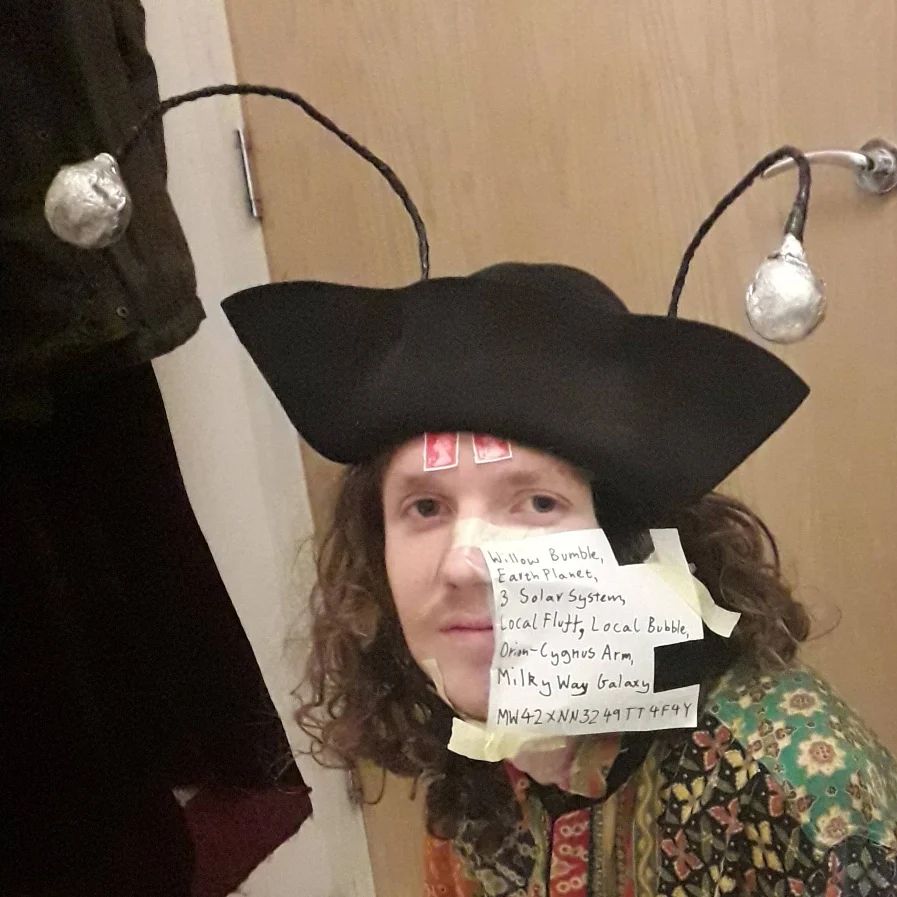 Willow Bumble,
Earth Planet,
3 Solar System,
Local Fluff, Local Bubble,
Orion-Cygnus Arm,
Milky Way Galaxy
MW42XNN3249TT4F4Y